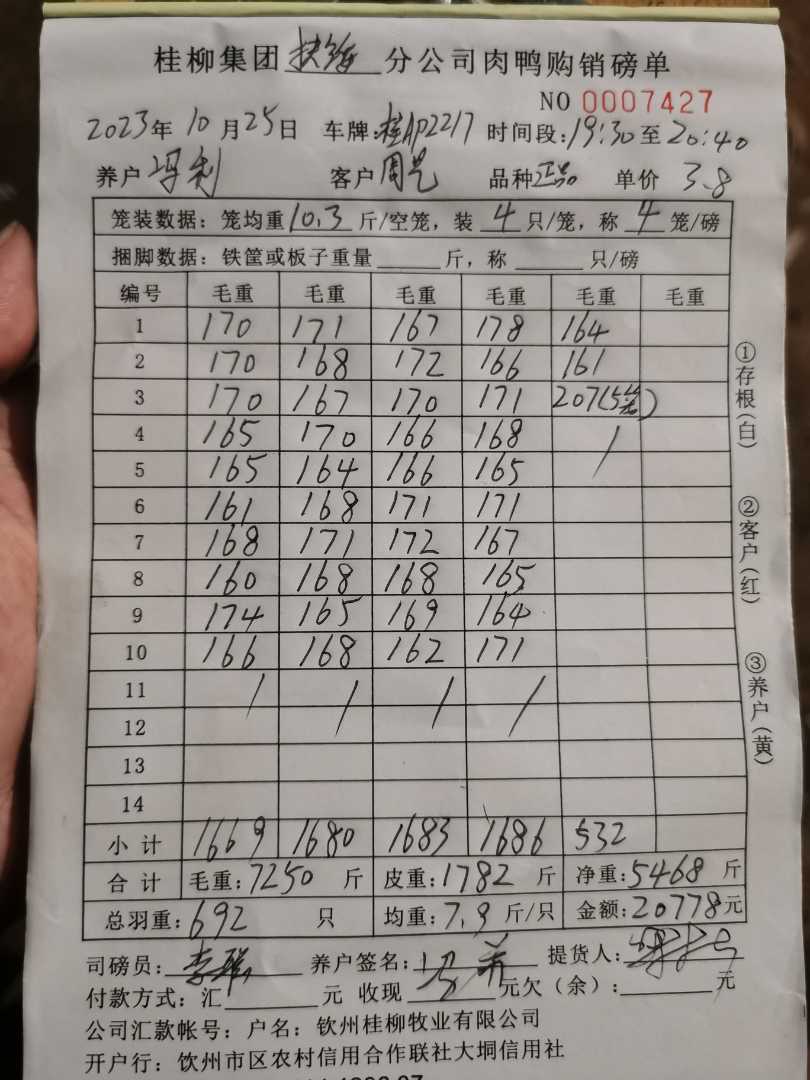 桂柳集团扶绥分公司肉鸭购销磅单
NO 0007427
2023年10月25日 车牌:桂AP2217 时间段:19:30至20:40
养户冯利 客户周 品种正品 单价 3.8
笼装数据:笼均重10.3斤/空笼,装4只/笼,称4笼/磅
捆脚数据:铁筐或板子重量 斤,称 只/磅
编号 毛重 毛重 毛重 毛重 毛重 毛重
1 170 171 167 178 164
2 170 168 172 166 161
3 170 167 170 171 207(5笼)
4 165 170 166 168 /
5 165 164 166 165
6 161 168 171 171
7 168 171 172 167
8 160 168 168 165
9 174 165 169 164
10 166 168 162 171
11 / / / /
12
13
14
小计 1669 1680 1683 1686 532
合计 毛重:7250斤 皮重:1782斤 净重:5468斤
总羽重:692只 均重:7.9斤/只 金额:20778元
司磅员: 养户签名: 提货人:
付款方式:汇 元 收现 元欠(余): 元
公司汇款帐号:户名:钦州桂柳牧业有限公司
开户行:钦州市区农村信用合作联社大垌信用社
①存根(白)
②客户(红)
③养户(黄)